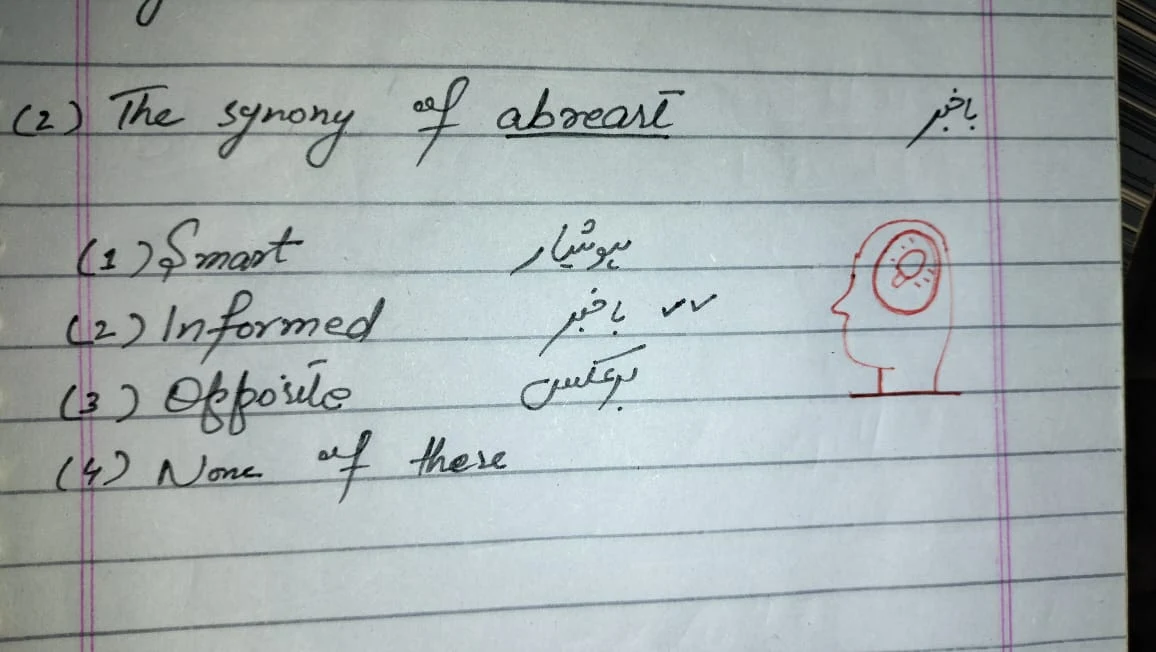 (2) The synony of abreast باخبر
(1) Smart ہوشیار
(2) Informed باخبر ✓✓
(3) Opposite برعکس
(4) None of these